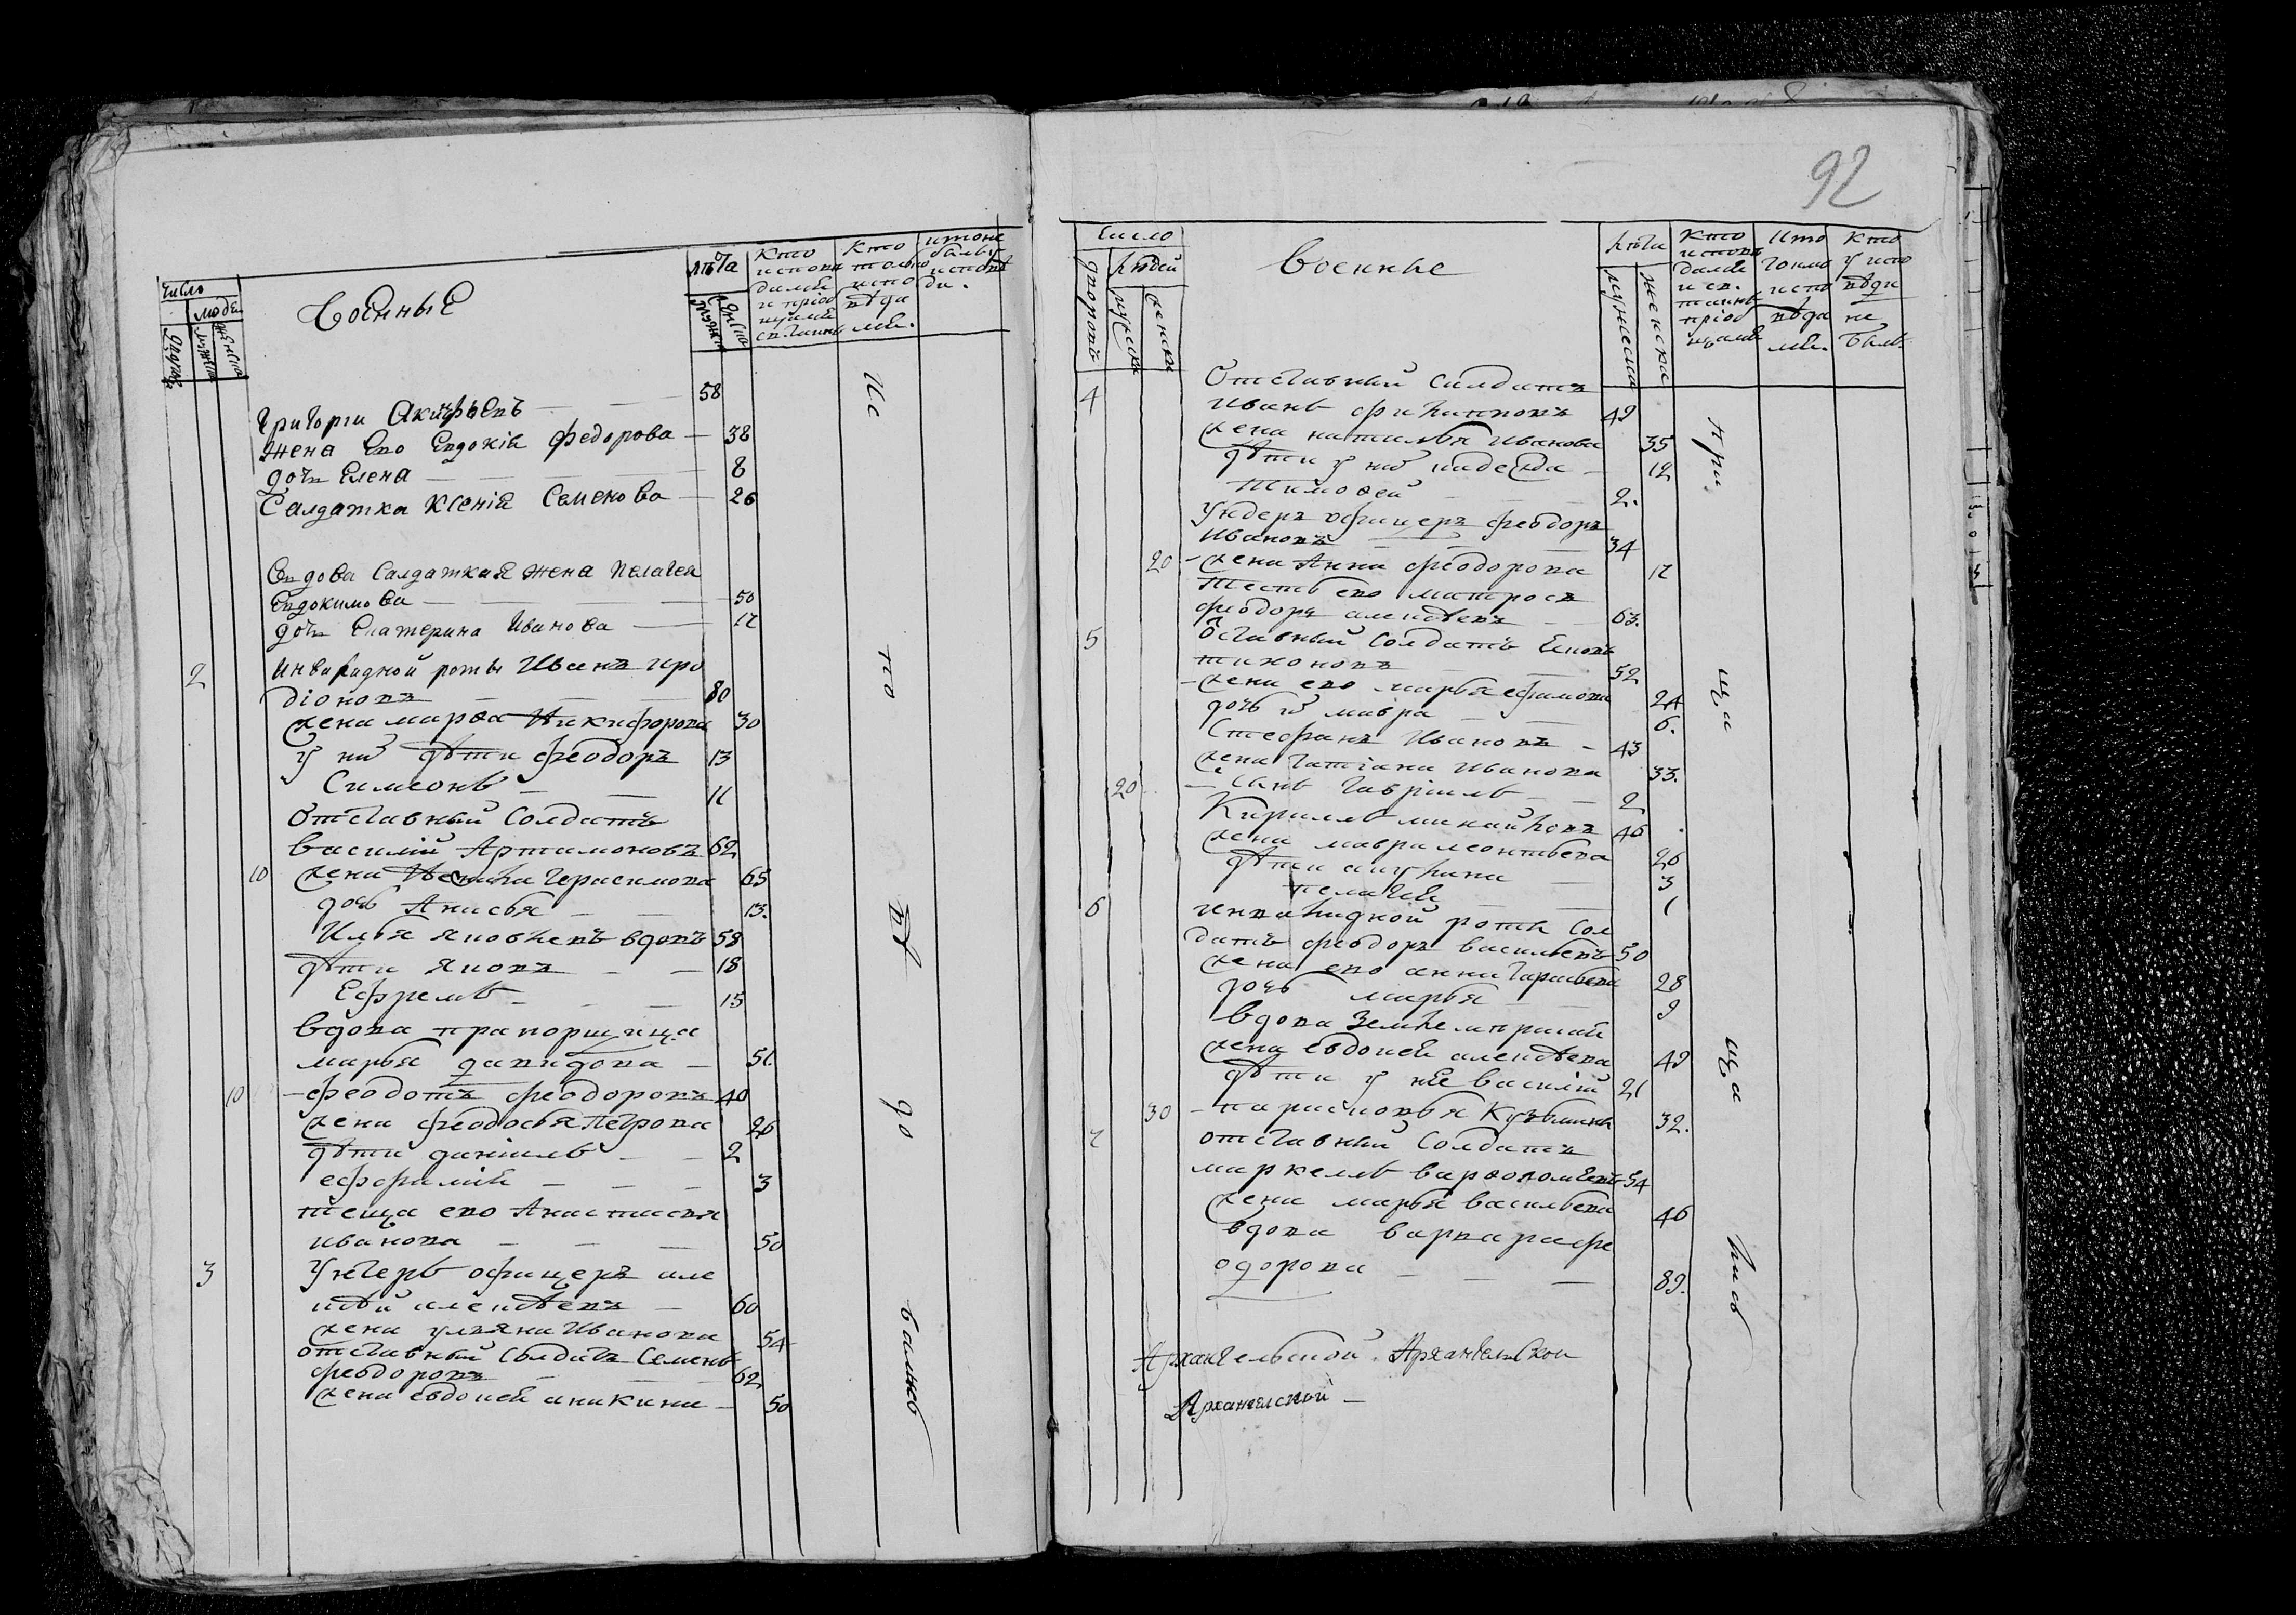 число
людей
дворовъ
мужеска
женска
Военные
лѣта
мужеска
женска
Кто исповѣдалис и приобщалис св. таинъ
Кто только исповѣдалис.
кто не былъ у исповѣди.
Григории Акифьевъ — 58
Жена Ево Евдокія Федорова — 38
дочь Елена — 8
Салдатка Ксенія Семенова — 26
Вдова Салдатская жена Пелагея
Евдокимова — 50
дочь Екатерина Иванова — 17
2 Инвалидной роты Иванъ иро
діоновъ — 80
жена марѳа Никифорова 30
у них дѣти феодоръ 13
Симеонъ — 11
Отставный Солдатъ
василій Артамоновъ 62
10 жена Герасимова 65
дочь Анисья — 13.
Илья яковлевъ вдовъ 58
дѣти яковъ — 18
Ефремъ — 15
вдова прапорщица
марья давидова — 51.
10 — феодотъ феодоровъ 40
жена феодосья Петрова 26
дѣти даніилъ — 2
еффимія — 3
теща ево Анастасья
иванова — 50
3 Унтеръ офицеръ але
ксѣй алексѣевъ — 60
жена ульяна Иванова 54
отставный Солдатъ Семенъ
феодоровъ — 62
жена евдокея аникина — 50
Ис
по
вѣ
до
вались
92
число
дворовъ
людей
мужеска
женска
Военные
лѣта
мужеска
женска
Кто исповѣдалис и св. таинъ приобщалис
Кто токмо исповѣдалис.
Кто у исповѣди не былъ
4 Отставный Салдатъ
иванъ филипповъ 49
жена наталья Иванова 35
дѣти у них надежда — 12
Тимофей 2.
Ундеръ офицеръ феодоръ
Ивановъ — 34
20 — жена Анна феодорова 17
Тесть ево матросъ
феодоръ алексѣевъ — 63.
5 Отставный Солдатъ
тихоновъ — 52
— жена ево марья ефимова 24
дочь их мавра — 6.
Стефанъ Ивановъ — 43
жена Татіана Иванова 33.
20 — Сынъ Гавріилъ — 2
Кирилъ михайловъ 46
жена мавра леонтьева 26
дѣти акулина — 3
пелагея — 1
6 инвалидной роты Сол
датъ феодоръ васильевъ 50
жена ево анна 28
дочь марья — 9
вдова
жена евдокея алексѣева 49
дѣти у нее василій 21
30 — парасковья Кузьмина 32.
7 отставный Солдатъ
маркелъ варѳоломѣевъ 54
жена марья васильева 46
вдова варвара фе
одорова — 89.
при
ща
ща
лись
Архангельской. Архангельской
Архангелской —